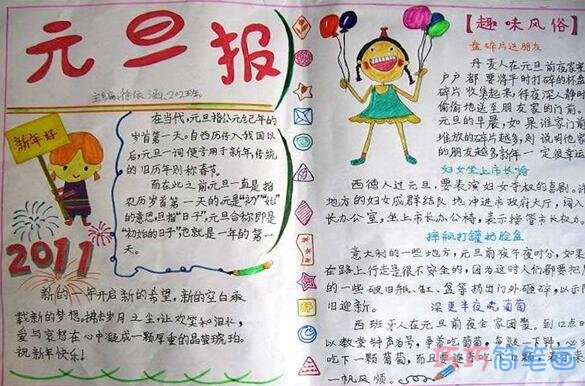 元旦报
主编:徐依涵、202班
新年好
2011
在当代,元旦指公元纪年的
岁首第一天。自西历传入我国以
后,元旦一词便专用于新年,传统
的旧历年则称春节。
而在此之前元旦一直是指
农历岁首第一天的。元是“初”“始”
的意思,旦指“日子”,元旦合称即是
“初始的日子”,也就是一年的第一
天。
新的一年开启新的希望,新的空白承
载新的梦想。拂去岁月之尘,让欢笑和泪水、
爱与哀愁在心中凝成一颗厚重的晶莹琥珀。
祝新年快乐!
【趣味风俗
盘碎片送朋友
丹麦人在元旦前夜家
户户都要将平时打碎的杯
碎片收集起来,待夜深人静时
偷偷地送至朋友家的门前。
元旦的早晨,如果谁家门前
堆放的碎片越多,则说明他家
的朋友越多新年一定很幸运
妇女坐上市长椅
西德人过元旦,要表演妇女夺权的喜剧。
地方的妇女成群结队地冲进市政府大厅,闯入
长办公室,坐上市长办公椅,表示接管市长权力。
摔瓶打罐扔脸盆
意大利的一些地方,元旦前夜午夜时分,如果
在路上行走是很不安全的,因为这时人们都要把
的一些破旧瓶、缸、盆等扔出门外砸碎,以示
旧迎新。
深更半夜吃葡萄
西班牙人在元旦前夜全家团聚,到12点
以教堂钟声为号,争着吃葡萄,每敲一下钟,必
吃下一颗葡萄,而且要连着吃下
一帆风顺。
巧巧简笔画